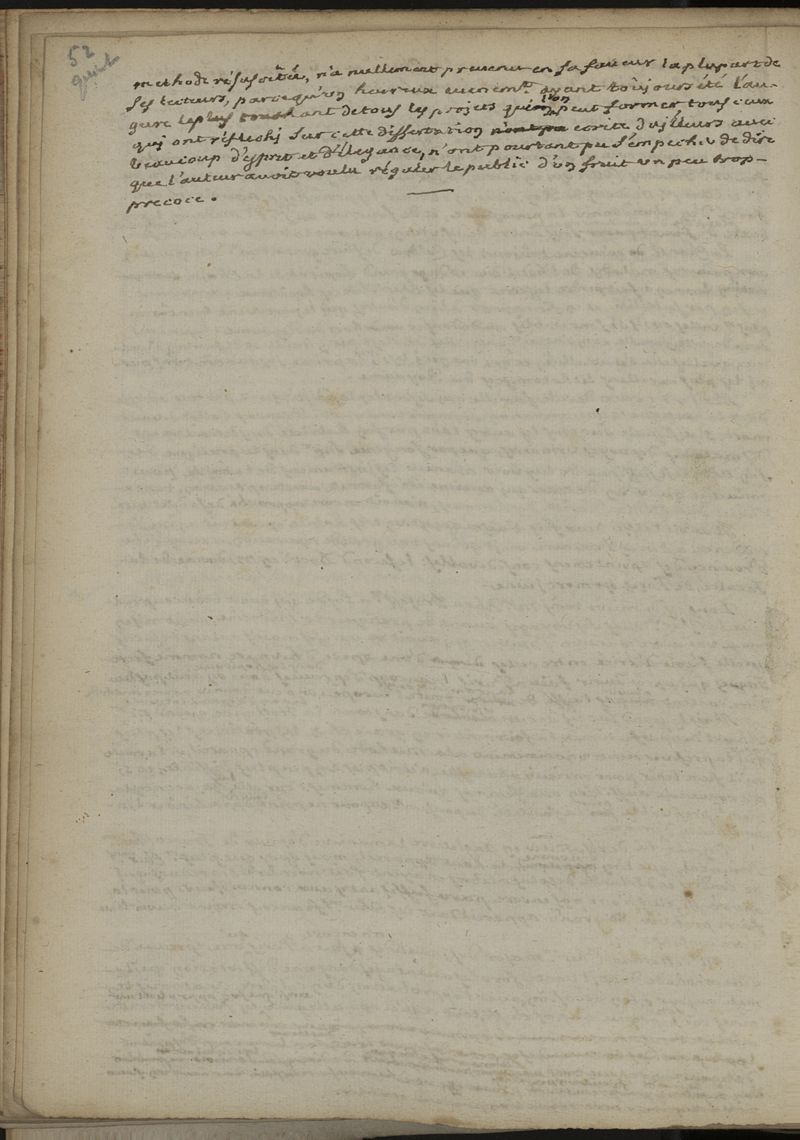 52
quint
methode résusçitée, n'a nullement prevenu en sa faveur la pluspart de
ses lecteurs, parcequ'vn heureux euenemt. ayant toûjours été l'au-
gure le plus touchant de tous les projets que l'on peut former tous ceux
quj ont réflechj sur cette dissertation n'ont pu ecrite d'ajlleurs auec
beaucoup d'esprit et d'élegance, n'ont pourtant pu s'empecher de dire
que l'auteur avoit voulu régaler le public d'vn fruit vn peu trop-
precoce.